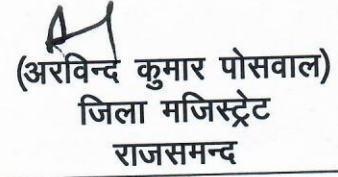 (अरविन्द कुमार पोसवाल)
जिला मजिस्ट्रेट
राजसमन्द